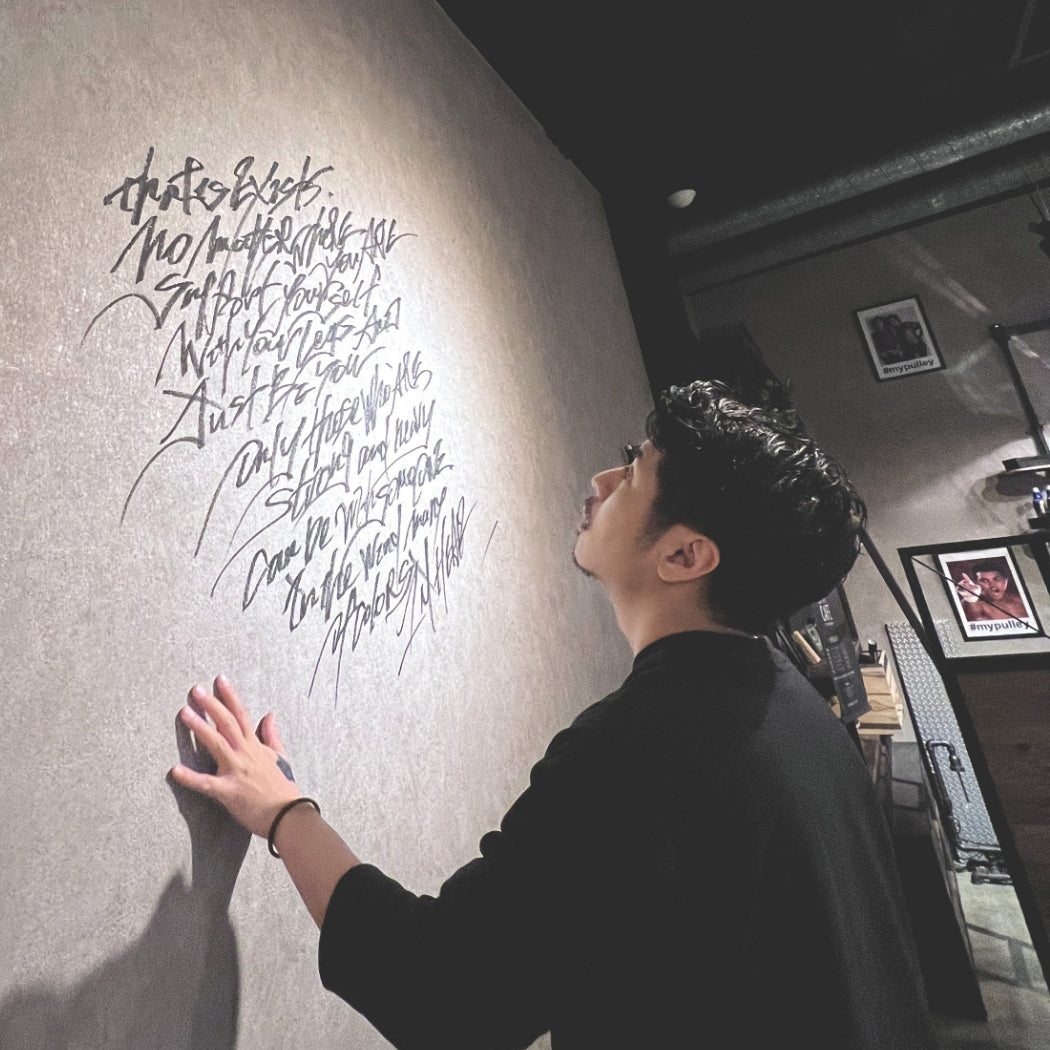 Exists.
No matter where
you are
Support yourself
With your legs And
Just Be you
only those who are
strong and
can be with someone
in the Wind many
colors IN
#mypulley
#mypulley